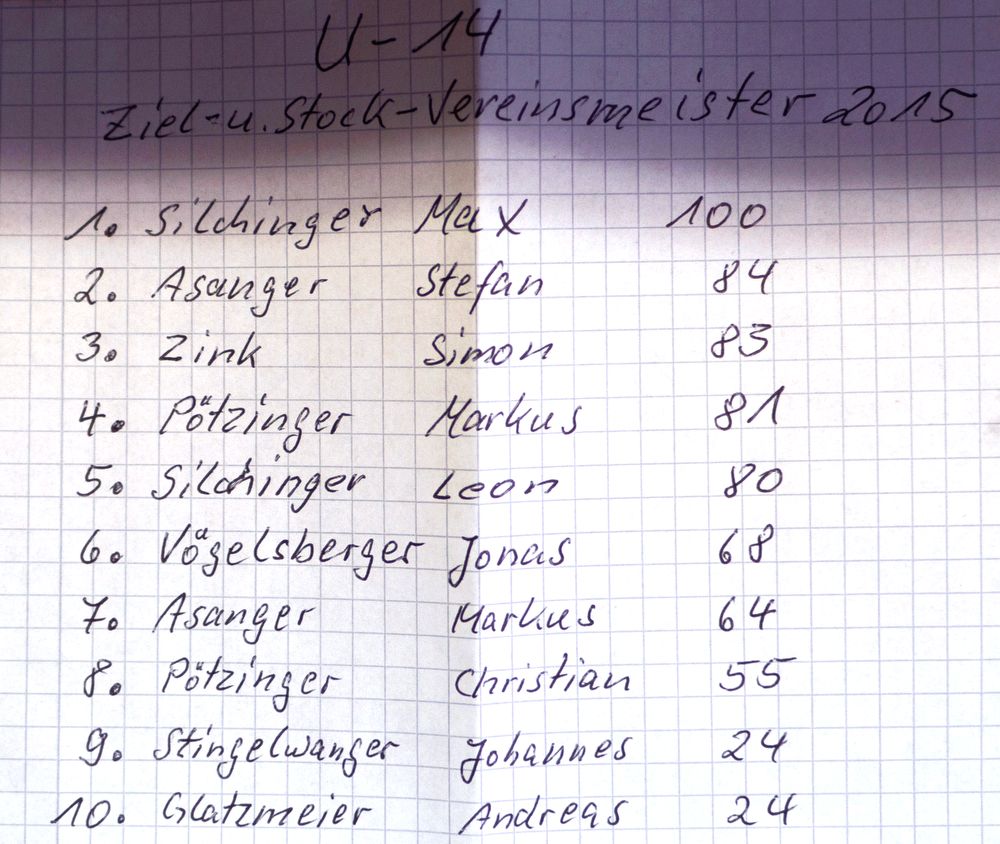 U-14
Ziel-u. Stock-Vereinsmeister 2015
1. Silchinger Max 100
2. Asanger Stefan 84
3. Zink Simon 83
4. Pötzinger Markus 81
5. Silchinger Leon 80
6. Vögelsberger Jonas 68
7. Asanger Markus 64
8. Pötzinger Christian 55
9. Stingelwanger Johannes 24
10. Glatzmeier Andreas 24